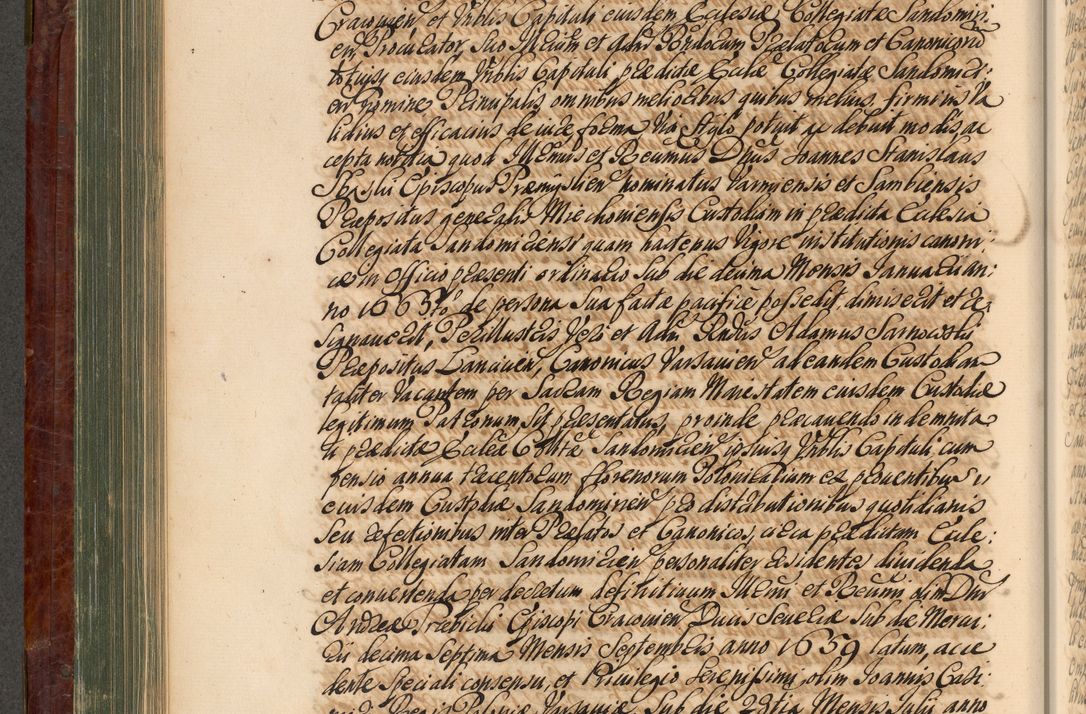 Cracovien et Vrblis Capituli eiusdem Ecclesiæ Collegiatæ Sandomiri:
en Procurator Suo Illeum et Adm Rndorum Prælatorum et Canonicorū
totiusq eiusdem Vrblis Capituli prædictæ Eccliæ Collegiatæ Sandomiri:
en nomine Principalis omnibus melioribus quibus melius firmius Va
lidius et efficacius de iure forma Via Stylo potuit ac debuit modis ac
cepta notitia quod Illmus et Reumus Dnus Joannes Stanislaus
Sbąski Episcopus Præmyslien nominatus Varmiensis et Sambiensis
Præpositus generalis Miechoviensis Custodiam in prædicta Ecclesia
Collegiata Sandomiriensi quam hactenus Vigore institutionis canoni:
cæ in Officio præsenti ordinario Sub die decima Mensis Januarii an:
no 1663tio de persona Sua factæ pacifice possedit dimiserit et re:
signaverit, Perillustris Vero et Adm Rndus Adamus Sarnowski
Præpositus Lancicien, Canonicus Varsavien ad eandem Custodiam
taliter Vacantem per Sacram Regiam Maiestatem eiusdem Custodiæ
legitimum Patronum sit præsentatus, proinde præcavendo indemnita
ti prædictæ Ecclæ Collttæ Sandomirien ipsiusq Vrblis Capituli, cum
pensio annua trecentorum florenorum Polonicalium ex proventibus
eiusdem Custodiæ Sandomirien pro distributionibus quotidianis
seu refectionibus inter Prælatos et Canonicos, circa prædictam Eccle:
siam Collegiatam Sandomirien personaliter residentes dividenda
et convertenda per decretum definitivum Illmi et Reumi olim Dni
Andreæ Trzebicki Episcopi Cracovien Ducis Severiæ Sub die Mercu:
rii decima Septima Mensis Septembris anno 1659 latum, acce
dente speciali consensu, et Privilegio Serenissimi olim Joannis Casi:
miri Regis Poloniæ Varsaviæ, Sub die 28tia Mensis Julii anno